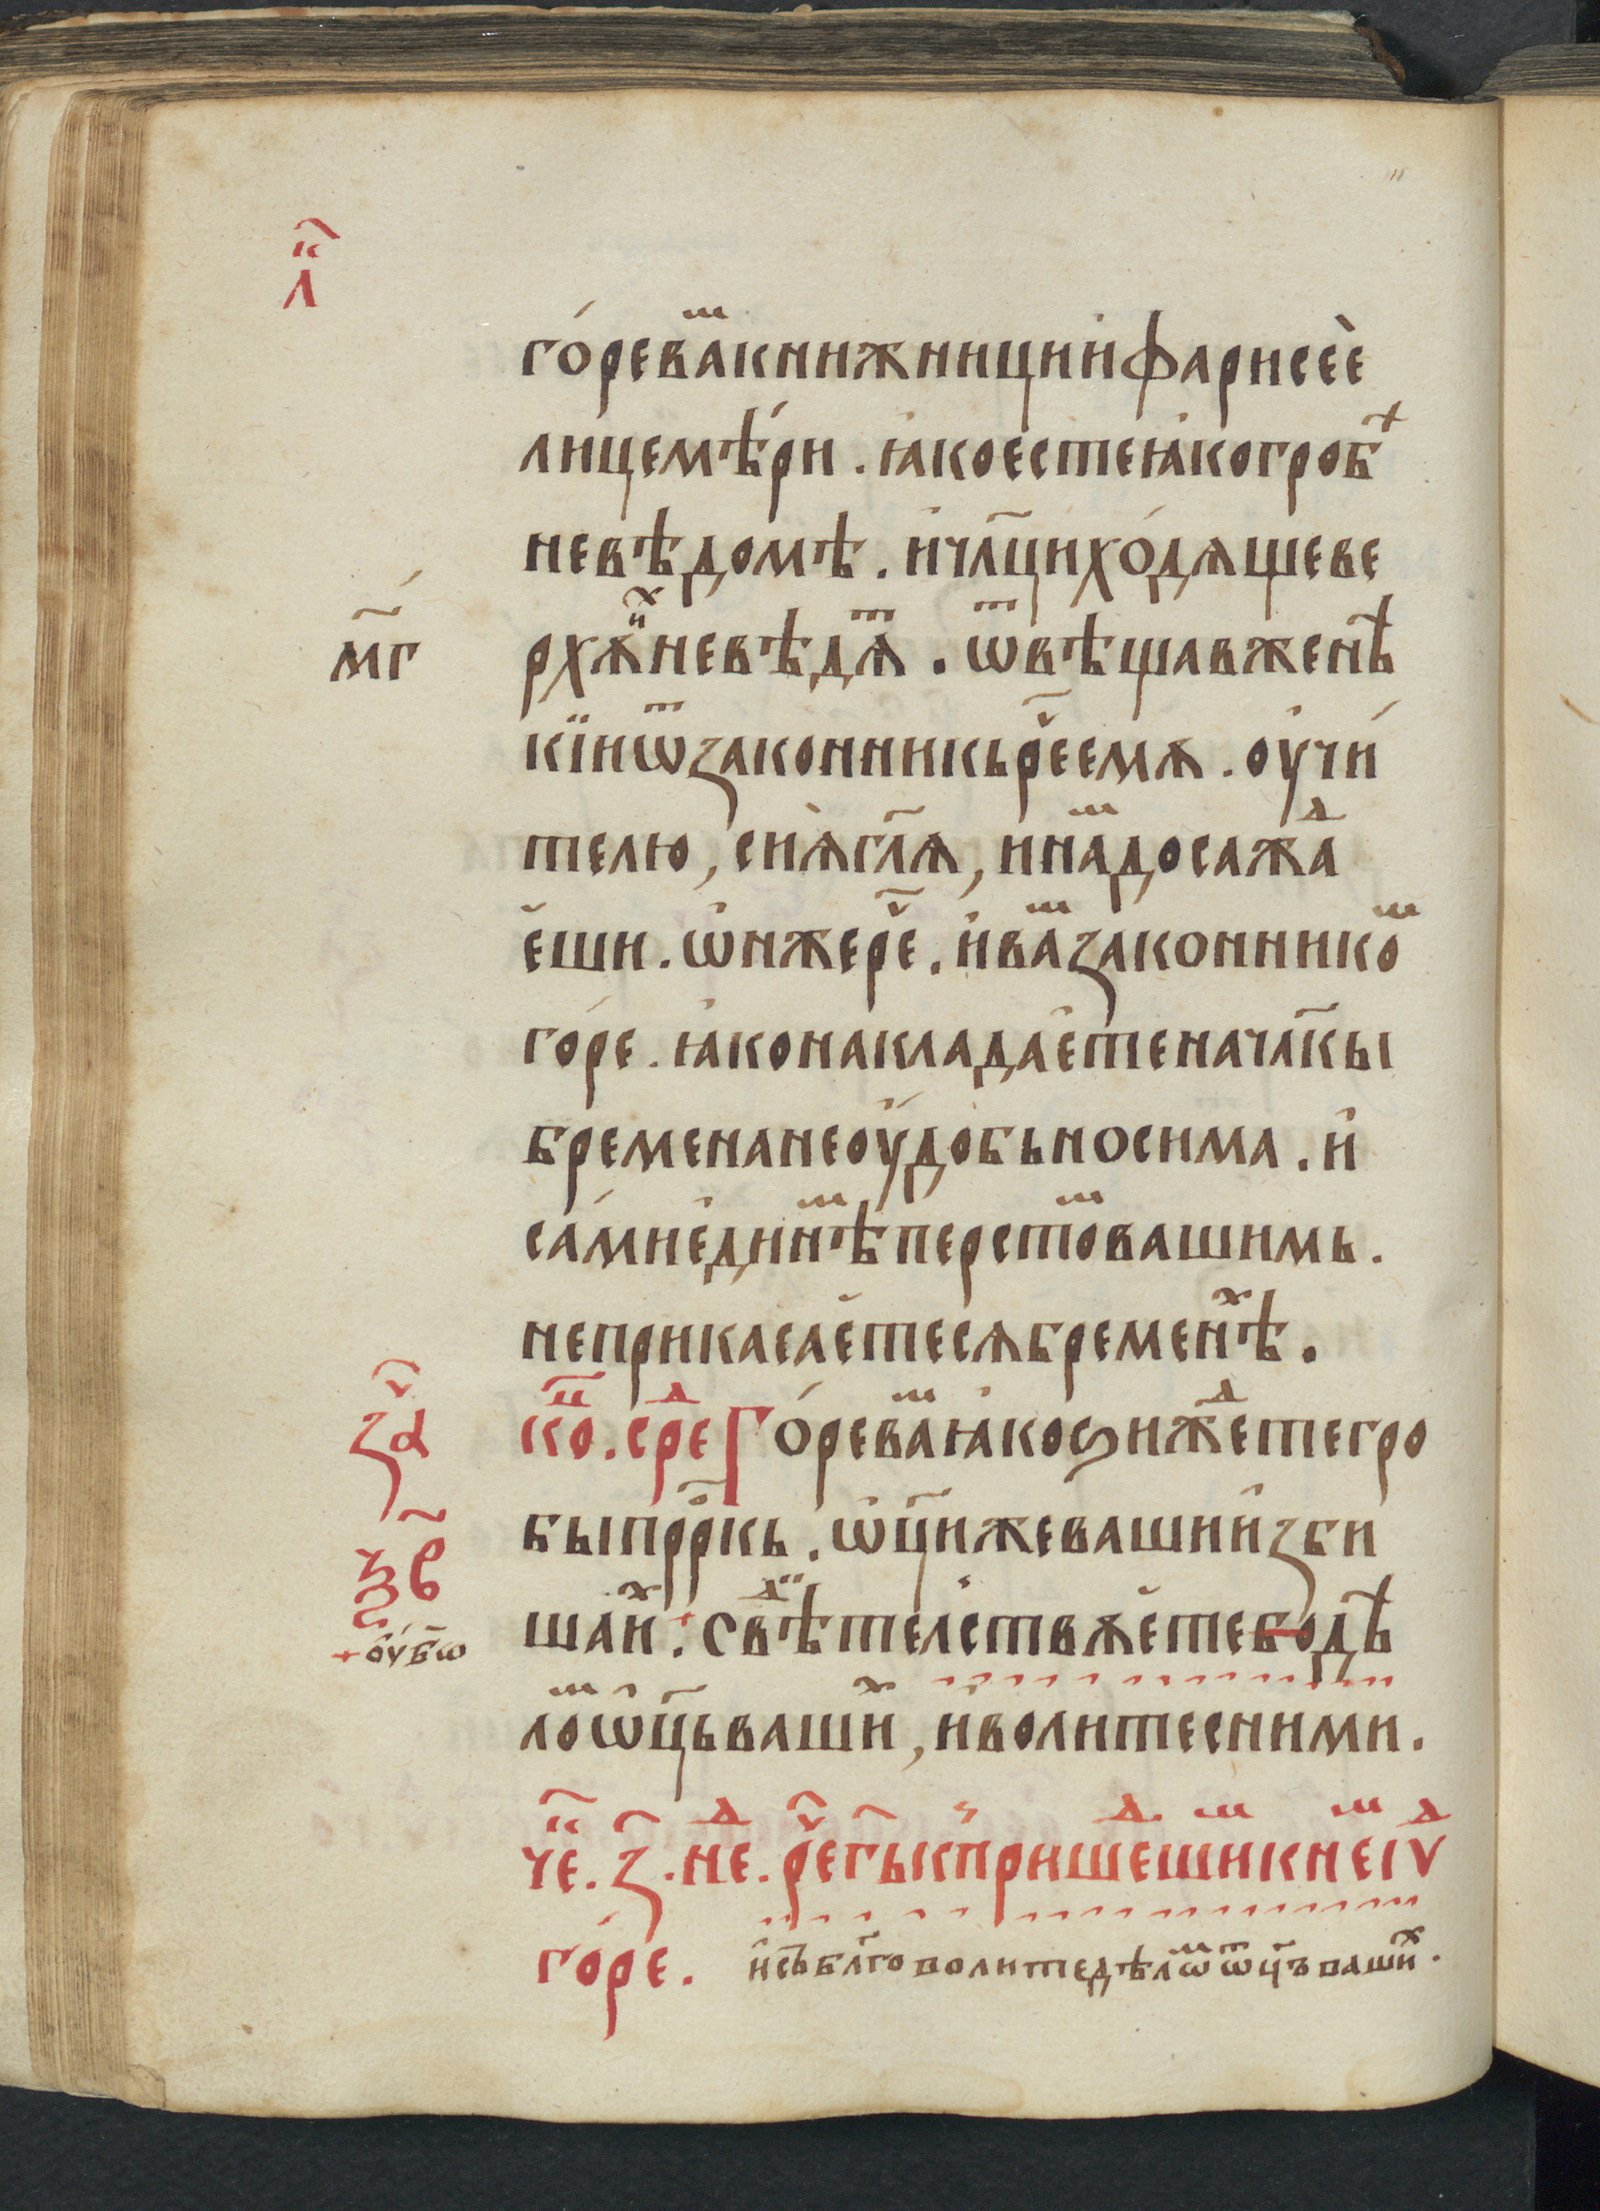 л҃
го́ревⷨакнижници и҆фарисеѐ
лицемѣ́ри . ꙗ҆коестеꙗ҆когробⷯ
невѣдомѣ . и҆чл҃цихо́дѧщеве
м҃г
рхѫ̈ⷯневѣдѧⷮ . ѿвѣщавженѣ
кїиѿзаконникьрⷱ҇еемѫ . оучи́
телю , сиѧ̀гл҃ѧ , инⷨадосажⷣа
е҆ши . ѡ҆нжерⷱ҇е . и҆вⷨазаконникоⷨ
го́ре . ꙗ҆конакладае҆теначл҃кы
бременанеоу҆добьносима . и҆
са́мие҆динⷨѣперстоⷨвашимь .
неприкасае҆тесѧбременⷯѣ .
з҃ а
кⷩ҇о . срⷣе Го́ревⷨаꙗ҆коѕижⷣетегро
ѯ҃в
быпррⷪ҇кь . ѡ҆ц҃ижевашии҆зби
шаиⷯ : Свⷣѣтелствѫе҆тебодѣ
+ оу҆б҃ѡ
лоⷨѡ҆ц҃ьвашиⷯ , и҆волитесними .
че҃ . з҃ . нⷣе . рⷱ҇ег҃ькпришеⷣшиⷨкнⷨеіⷣѵ
го́ре . и҆събл҃говолитедѣлѡⷨѿц҃ъвашиⷯ .